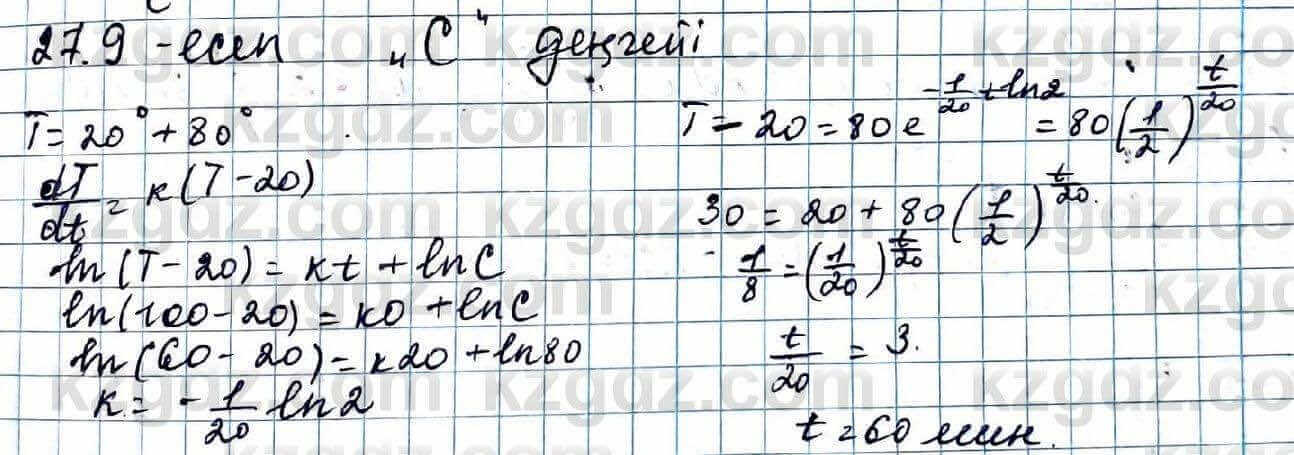 27.9 -есеп „С" деңгейі
T = 20° + 80°
dT/dt = к(T - 20)
ln(T - 20) = кt + lnC
ln(100 - 20) = к0 + lnC
ln(60 - 20) = к20 + ln80
к = - 1/20 ln2
T - 20 = 80e^(-1/20 t ln2) = 80(1/2)^(t/20)
30 = 20 + 80(1/2)^(t/20).
1/8 = (1/20)^(t/20)
t/20 = 3.
t = 60 мин.
kzgdz.com